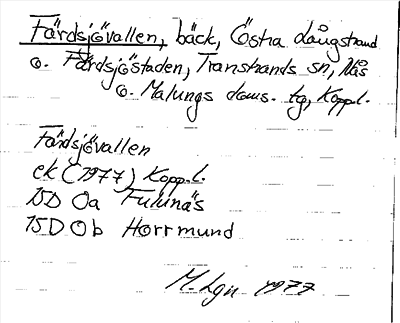 Färdsjövallen, bäck, Östra Långstrand
o. Färdsjöstaden, Transtrands sn, Nås
o. Malungs doms. tg, Koppl.
Färdsjövallen
ek (1977) Kopp.l.
15D 0a Fulunäs
15D 0b Horrmund
M. Lgn 1977